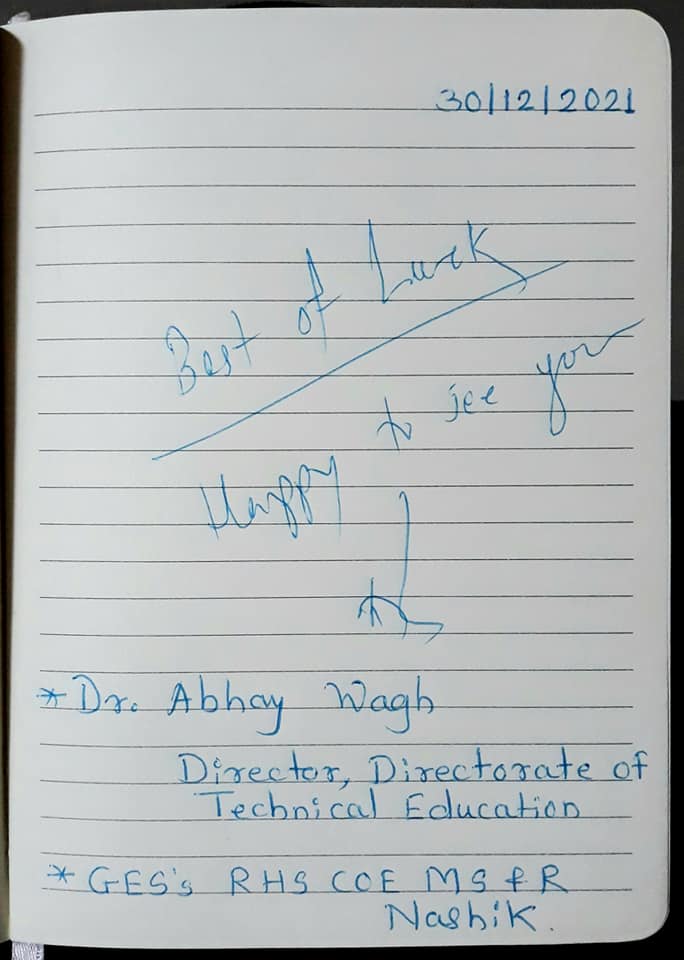 30/12/2021
Best of Luck
Happy to see you
* Dr. Abhay Wagh
Director, Directorate of
Technical Education
* GES's RHS COE MS & R
Nashik.